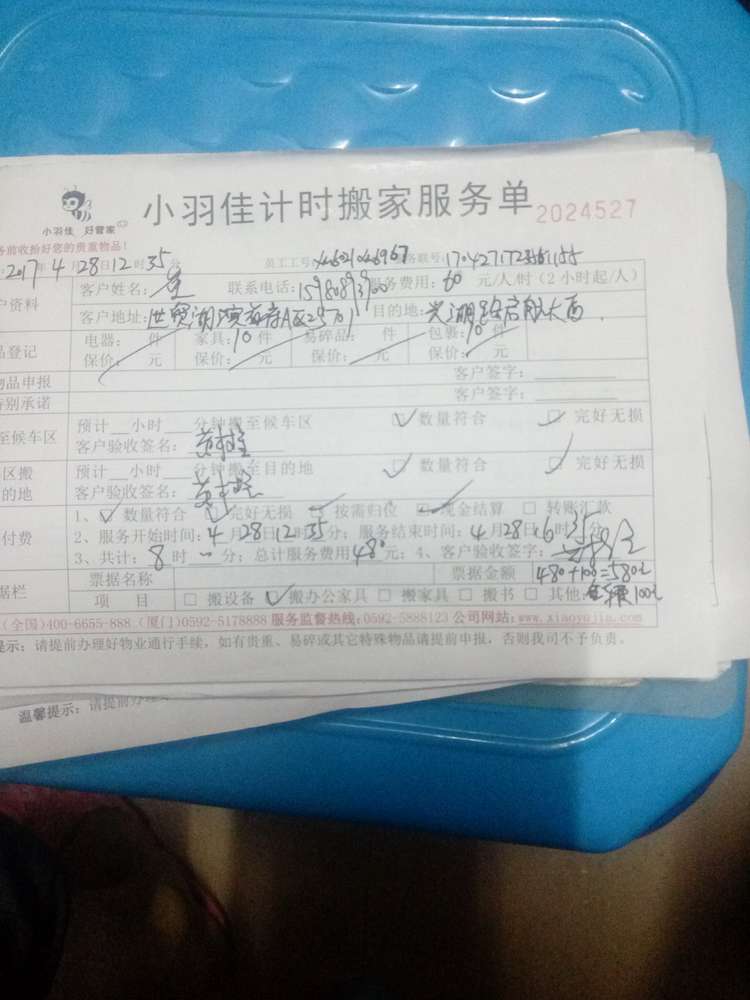 小羽佳计时搬家服务单 2024527
小羽佳 好管家
务前收拾好您的贵重物品!
2017年4月28日12时35分 员工工号: 务联号:
户资料 客户姓名: 联系电话: 服务费用:60元/人/时(2小时起/人)
客户地址:世贸湖滨首府A区2970 目的地:
品登记 电器: 件 家具:10件 易碎品: 件 包裹:90件
保价: 元 保价: 元 保价: 元 保价: 元
物品申报 客户签字:
特别承诺 客户签字:
至候车区 预计 小时 分钟搬至候车区 数量符合 完好无损
客户验收签名:
区搬 预计 小时 分钟搬至目的地 数量符合 完好无损
的地 客户验收签名:
1、 数量符合 完好无损 按需归位 现金结算 转账汇款
付费 2、服务开始时间:4月28日12时35分;服务结束时间:4月28日16时35分
3、共计:8时 分;总计服务费用480元;4、客户验收签字:
据栏 票据名称 票据金额 480+100=580元
项 目 搬设备 搬办公家具 搬家具 搬书 其他: 100元
(全国)400-6655-888 (厦门)0592-5178888 服务监督热线:0592-5888123 公司网站:www.xiaoyujia.com
提示:请提前办理好物业通行手续,如有贵重、易碎或其它特殊物品请提前申报,否则我司不予负责。
温馨提示:请提前办理